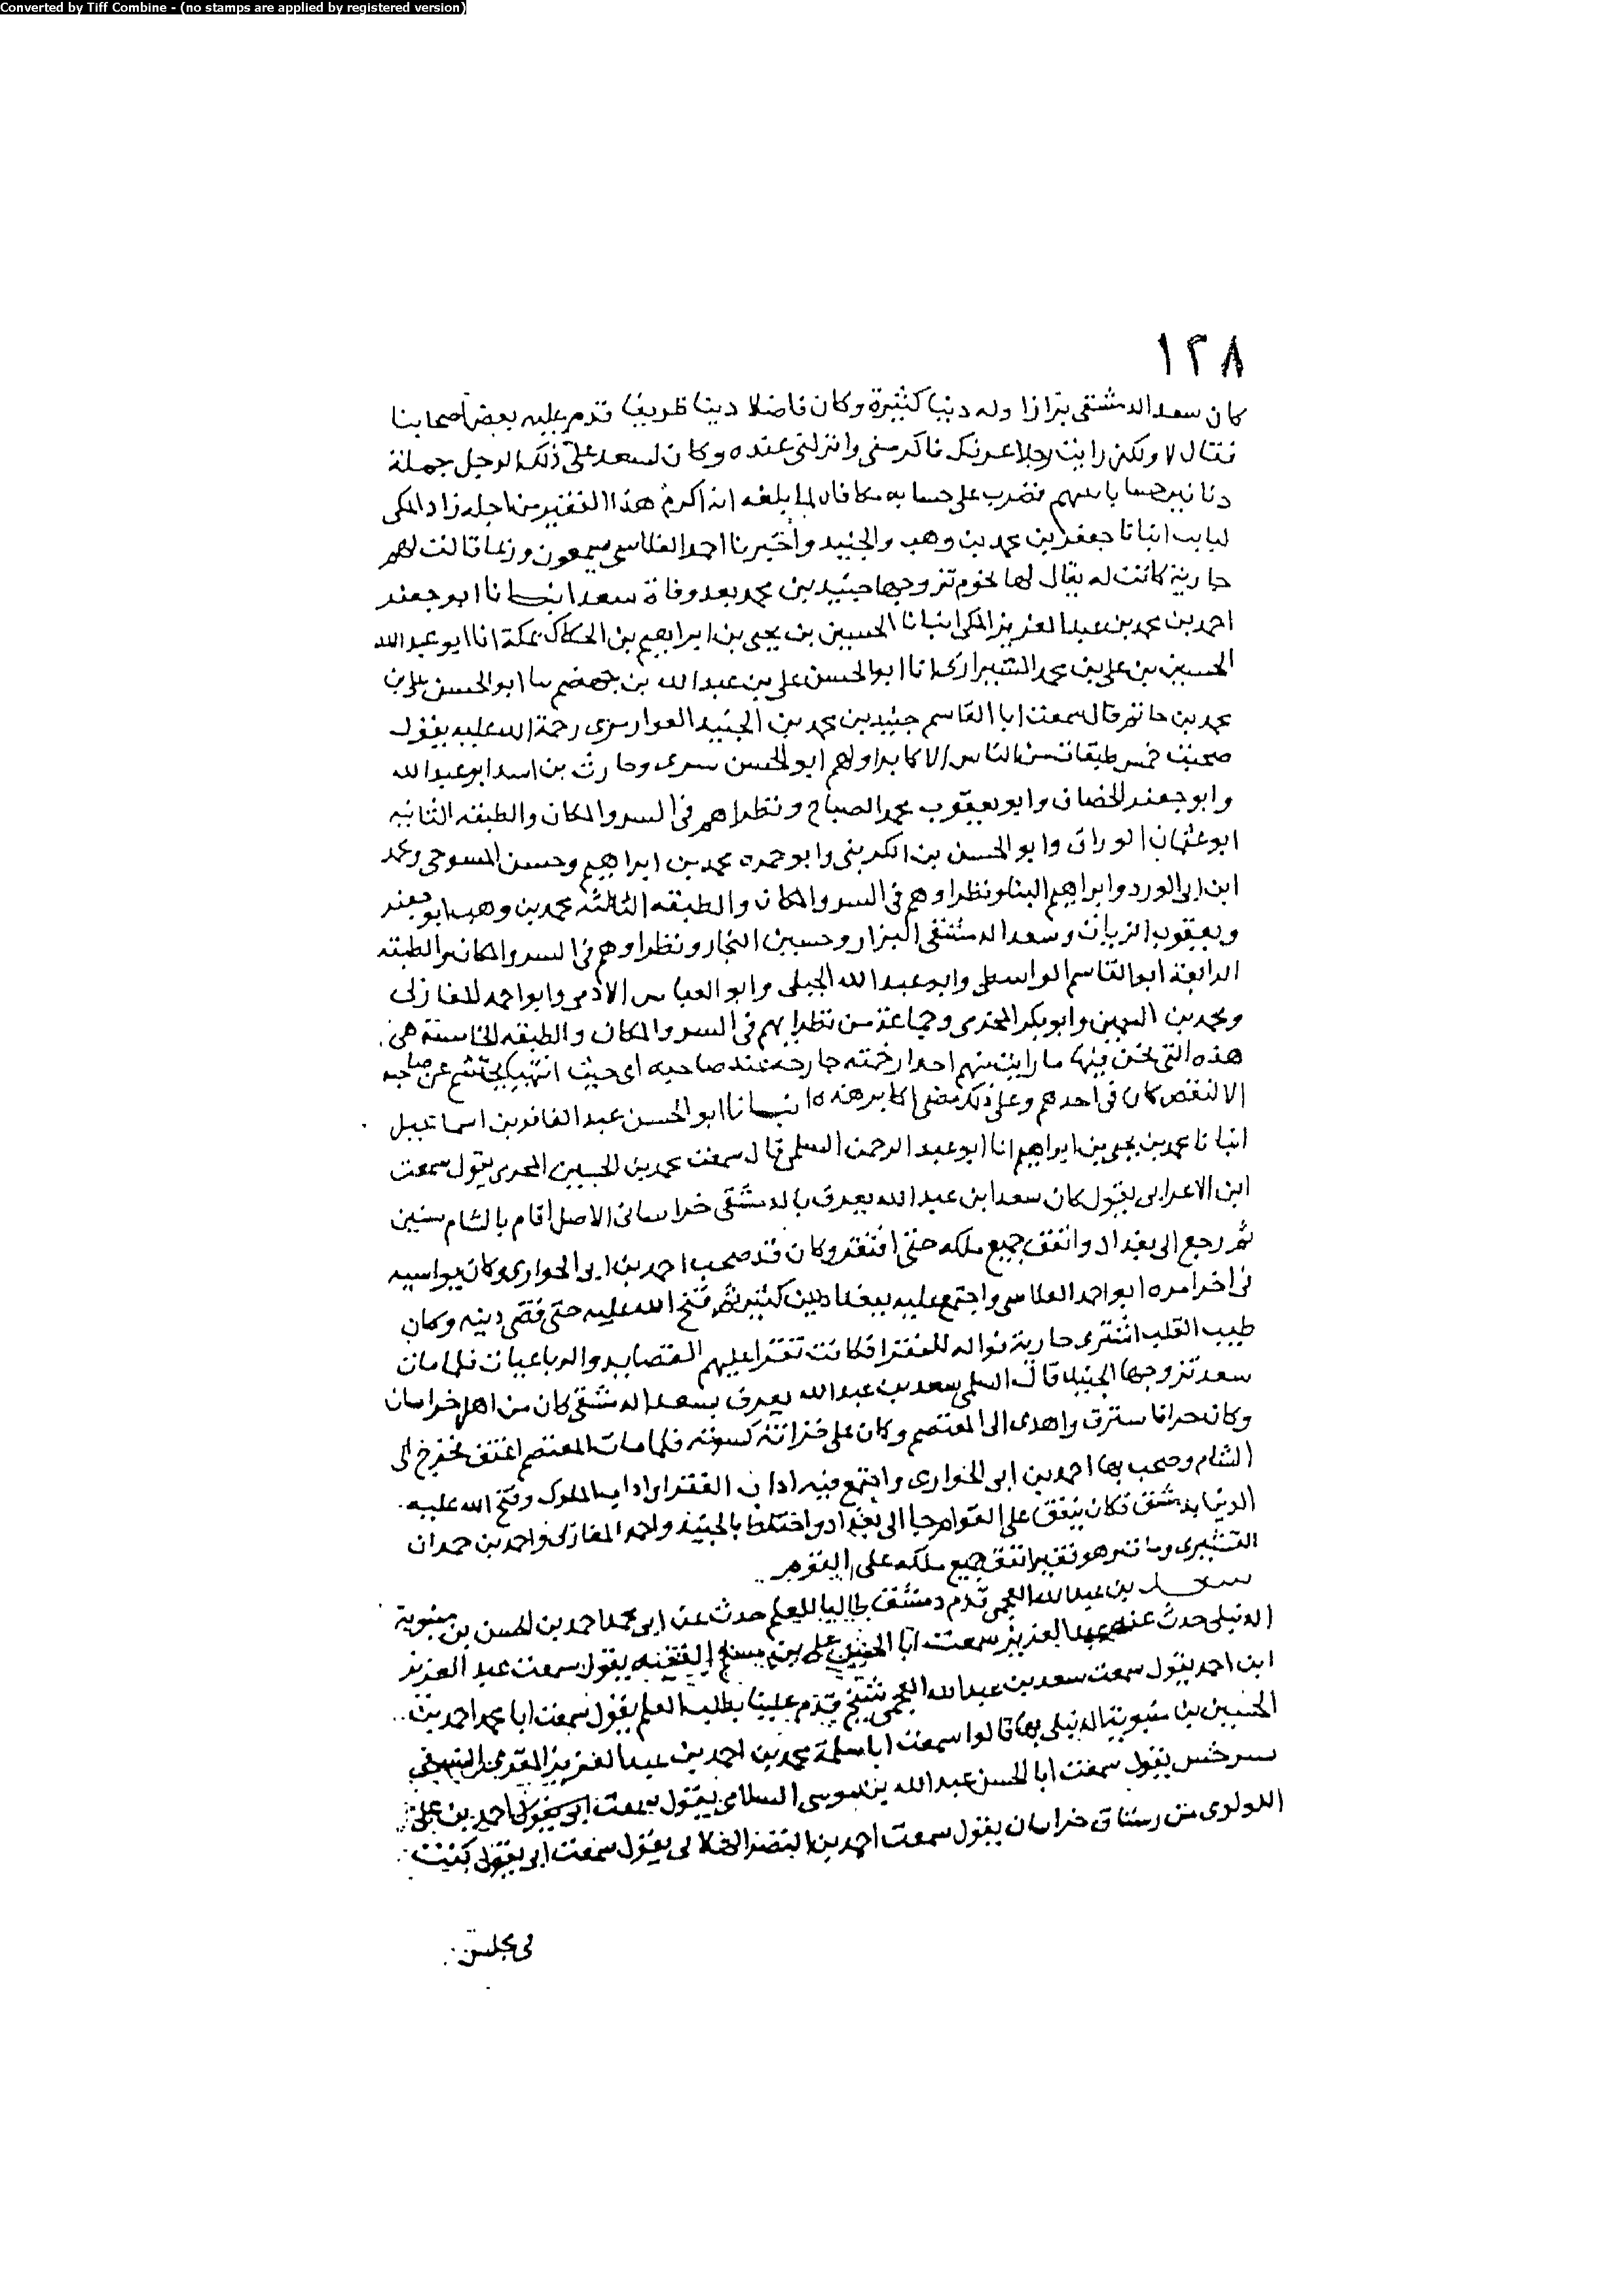 Converted by Tiff Combine - (no stamps are applied by registered version)
١٢٨
كان سعد الدمشقى بزازا وله دنيا كثيرة وكان فاضلا دينا ظريفا قدم عليه بعض اصحابنا
فقال لا ولكن رايت رجلا عرفك فاكرمنى وانزلنى عنده وكان لسعد على ذلك الرجل جملة
دنانير حسابا بينهم فضرب على حسابه مكافاه لما بلغه انه اكرم هذا الفقير من اجله زاد المكى
انبانا جعفر بن محمد بن وهب والجنيد واخبرنا احمد القلانسى يسمعون وربما قالت لهم
جارية كانت له يقال لها نجوم تزوجها جنيد بن محمد بعد وفاة سعد انبانا ابو جعفر
احمد بن محمد بن عبد العزيز المكى انبانا الحسين بن يحيى بن ابراهيم بن الحكاك بمكة انا ابو عبد الله
الحسين بن على بن محمد الشيرازى انا ابو الحسن على بن عبد الله بن جهضم سا ابو الحسن على بن
محمد بن حاتم قال سمعت ابا القاسم جنيد بن محمد بن الجنيد القواريرى رحمة الله عليه يقول
صحبت خمس طبقات من الناس الاكابر اولهم ابو الحسن سرى وحارث بن اسد ابو عبد الله
وابو جعفر الخصاف وابو يعقوب محمد الصباح ونظراهم فى السر والمكان والطبقه الثانيه
ابو عثمان الوراق وابو الحسن بن الكرينى وابو حمزه محمد بن ابراهيم وحسن المسوحى ومحمد
ابن ابى الورد وابراهيم البنا ونظراوهم فى السر والمكان والطبقه الثالثه محمد بن وهب ابو جعفر
ويعقوب الزيات وسعد الدمشقى البزاز وحسين النجار ونظراوهم فى السر والمكان والطبقه
الرابعة ابو القاسم الواسطى وابو عبد الله الجبلى وابو العباس الادمى وابو احمد المغازلى
ومحمد بن السمين وابو بكر المخرمى وجماعة من نظرايهم فى السر والمكان والطبقه الخامسة هى
هذه التى نحن فيها ما رايت منهم احدا رخمته جارحه عند صاحبه اى حيث انتهيت يحتشم عن صاحبه
الا لنقص كان فى احدهم وعلى ذلك مضى اكابر هذه انبانا ابو الحسن عبد الغافر بن اسماعيل
انبانا محمد بن يحيى بن ابراهيم انا ابو عبد الرحمن السلمى قال سمعت محمد بن الحسين يقول سمعت
ابن الاعرابى يقول كان سعد ابن عبد الله يعرف بالدمشقى خراسانى الاصل اقام بالشام سنين
ثم رجع الى بغداد وانفق جميع ملكه حتى افتقر وكان قد صحب احمد بن ابى الحوارى وكان يواسيه
فى اخر امره ابو احمد القلانسى واجتمع عليه ببغداد دين كثير ثم فتح الله عليه حتى قضى دينه وكان
طيب القلب اشترى جارية قواله للفقرا فكانت تقرا عليهم القصايد والرباعيات فلما مات
سعد تزوجها الجنيد قال السلمى سعد بن عبد الله يعرف بسعد الدمشقى كان من اهل خراسان
وكان حرا فاسترق واهدى الى المعتصم وكان على خزانة كسوته فلما مات المعتصم اعتق فخرج الى
الشام وصحب بها احمد بن ابى الحوارى واجتمع فيه اداب الفقرا واداب الملوك وفتح الله عليه
الدنيا بدمشق فكان ينفق على القوم جا الى بغداد واختلط بالجنيد واحمد المغازلى واحمد بن حمدان
القشيرى ومات وهو فقير انفق جميع ملكه على القوم
سعد بن عبد الله العجمى قدم دمشق طالبا للعلم حدث عن ابى محمد احمد بن الحسن بن
حدث عنه عبد العزيز سمعت ابا الحسن على بن مسلم الفقيه يقول سمعت عبد العزيز
ابن احمد يقول سمعت سعد بن عبد الله العجمى شيخ قدم علينا بطلب العلم يقول سمعت ابا محمد احمد بن
الحسين بن بها قالوا سمعت ابا سلمة محمد بن احمد بن عبد العزيز
سرخس يقول سمعت ابا الحسن عبد الله بن موسى السلامى يقول سمعت احمد بن على
اللولوى من رستاق خراسان يقول سمعت احمد بن يقول سمعت ابى يقول كنت
فى مجلس